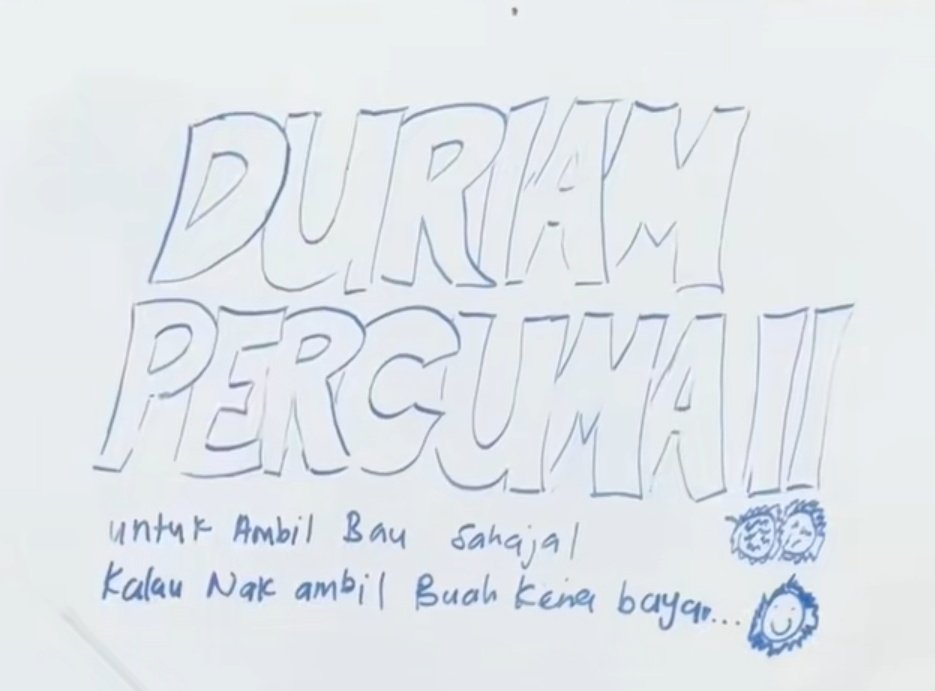 DURIAM
PERCUMA!!
untuk Ambil Bau Sahaja!
Kalau Nak ambil Buah Kena bayar...